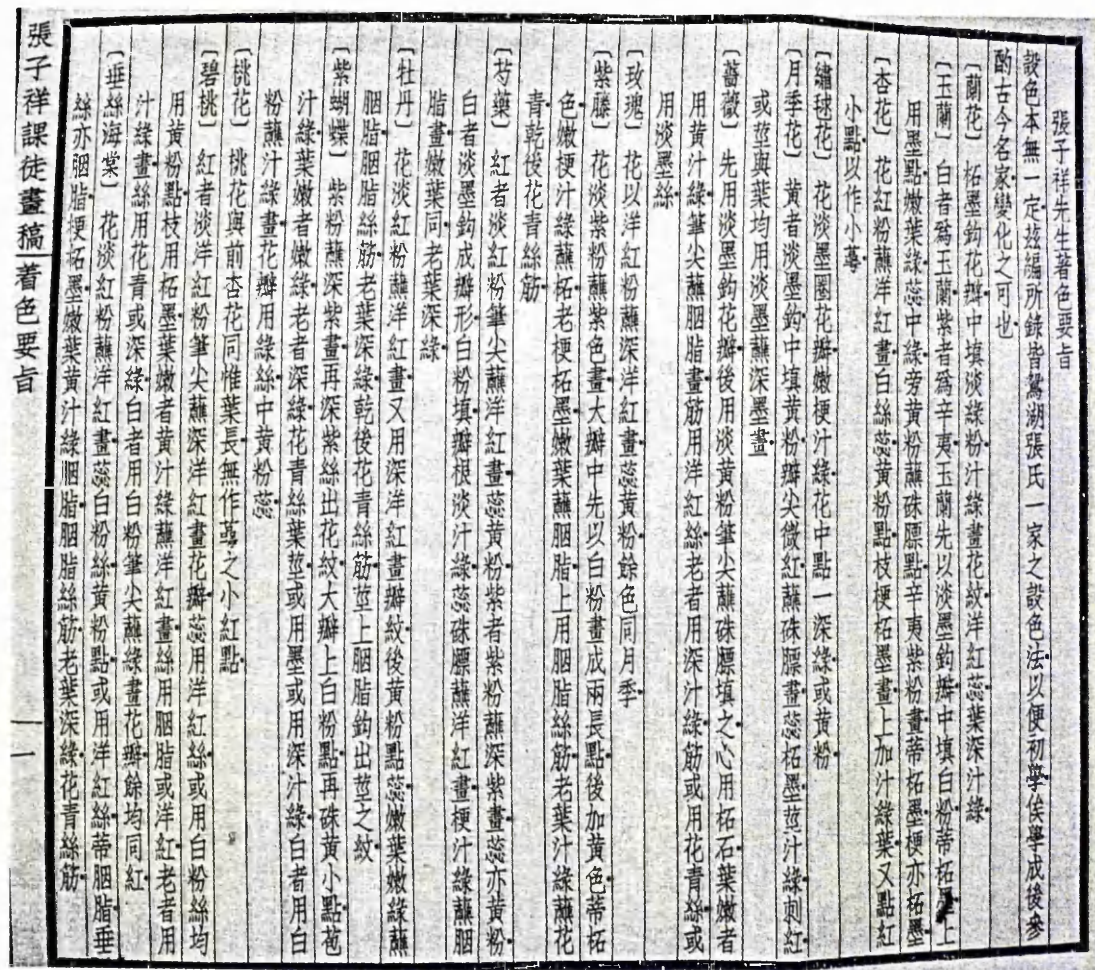 張子祥先生著色要旨
設色本無一定茲編所錄皆鴛湖張氏一家之設色法以便初學俟學成後參
酌古今名家變化之可也
〔蘭花〕 柘墨鈎花瓣中填淡綠粉汁綠畫花紋洋紅蕊葉深汁綠
〔玉蘭〕 白者為玉蘭紫者為辛夷玉蘭先以淡墨鈎瓣中填白粉蒂柘墨上
用墨點嫩葉綠蕊中綠旁黃粉蘸硃膘點辛夷紫粉畫蒂柘墨梗亦柘墨
〔杏花〕 花紅粉蘸洋紅畫白絲蕊黃粉點枝梗柘墨畫上加汁綠葉又點紅
小點以作小萼
〔繡毬花〕 花淡墨圈花瓣嫩梗汁綠花中點一深綠或黃粉
〔月季花〕 黃者淡墨鈎中填黃粉瓣尖微紅蘸硃膘畫蕊柘墨莖汁綠刺紅
或莖與葉均用淡墨蘸深墨畫
〔薔薇〕 先用淡墨鈎花瓣後用淡黃粉筆尖蘸硃膘填之心用柘石葉嫩者
用黃汁綠筆尖蘸胭脂畫筋用洋紅絲老者用深汁綠筋或用花青絲或
用淡墨絲
〔玫瑰〕 花以洋紅粉蘸深洋紅畫蕊黃粉餘色同月季
〔紫藤〕 花淡紫粉蘸紫色畫大瓣中先以白粉畫成兩長點後加黃色蒂柘
色嫩梗汁綠蘸柘老梗柘墨嫩葉蘸胭脂上用胭脂絲筋老葉汁綠蘸花
青乾後花青絲筋
〔芍藥〕 紅者淡紅粉筆尖蘸洋紅畫蕊黃粉紫者紫粉蘸深紫畫蕊亦黃粉
白者淡墨鈎成瓣形白粉填瓣根淡汁綠蕊硃膘蘸洋紅畫梗汁綠蘸胭
脂畫嫩葉同老葉深綠
〔牡丹〕 花淡紅粉蘸洋紅畫又用深洋紅畫瓣紋後黃粉點蕊嫩葉嫩綠蘸
胭脂胭脂絲筋老葉深綠乾後花青絲筋莖上胭脂鈎出莖之紋
〔紫蝴蝶〕 紫粉蘸深紫畫再深紫絲出花紋大瓣上白粉點再硃黃小點苞
汁綠葉嫩者嫩綠老者深綠花青絲葉莖或用墨或用深汁綠白者用白
粉蘸汁綠畫花瓣用綠絲中黃粉蕊
〔桃花〕 桃花與前杏花同惟葉長無作萼之小紅點
〔碧桃〕 紅者淡洋紅粉筆尖蘸深洋紅畫花瓣蕊用洋紅絲或用白粉絲均
用黃粉點枝用柘墨葉嫩者黃汁綠蘸洋紅畫絲用胭脂或洋紅老者用
汁綠畫絲用花青或深綠白者用白粉筆尖蘸綠畫花瓣餘均同紅
〔垂絲海棠〕 花淡紅粉蘸洋紅畫蕊白粉絲黃粉點或用洋紅絲蒂胭脂垂
絲亦胭脂梗柘墨嫩葉黃汁綠胭脂胭脂絲筋老葉深綠花青絲筋
張子祥課徒畫稿 着色要旨
一